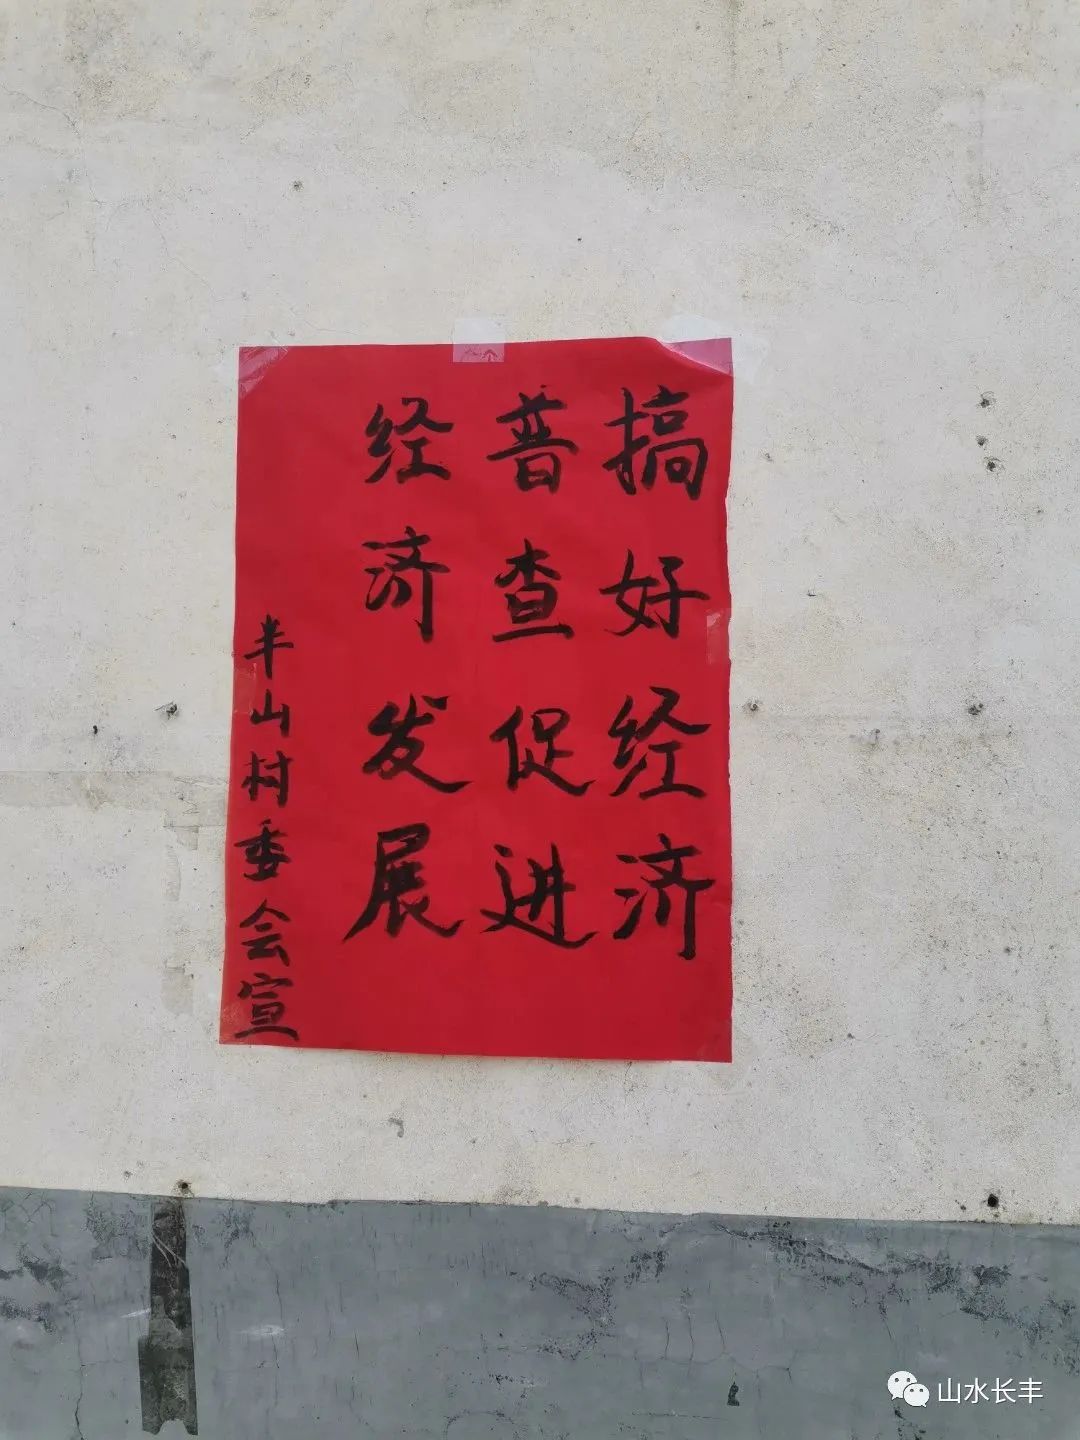 搞好经济
普查促进
经济发展
半山村委会宣
山水长丰